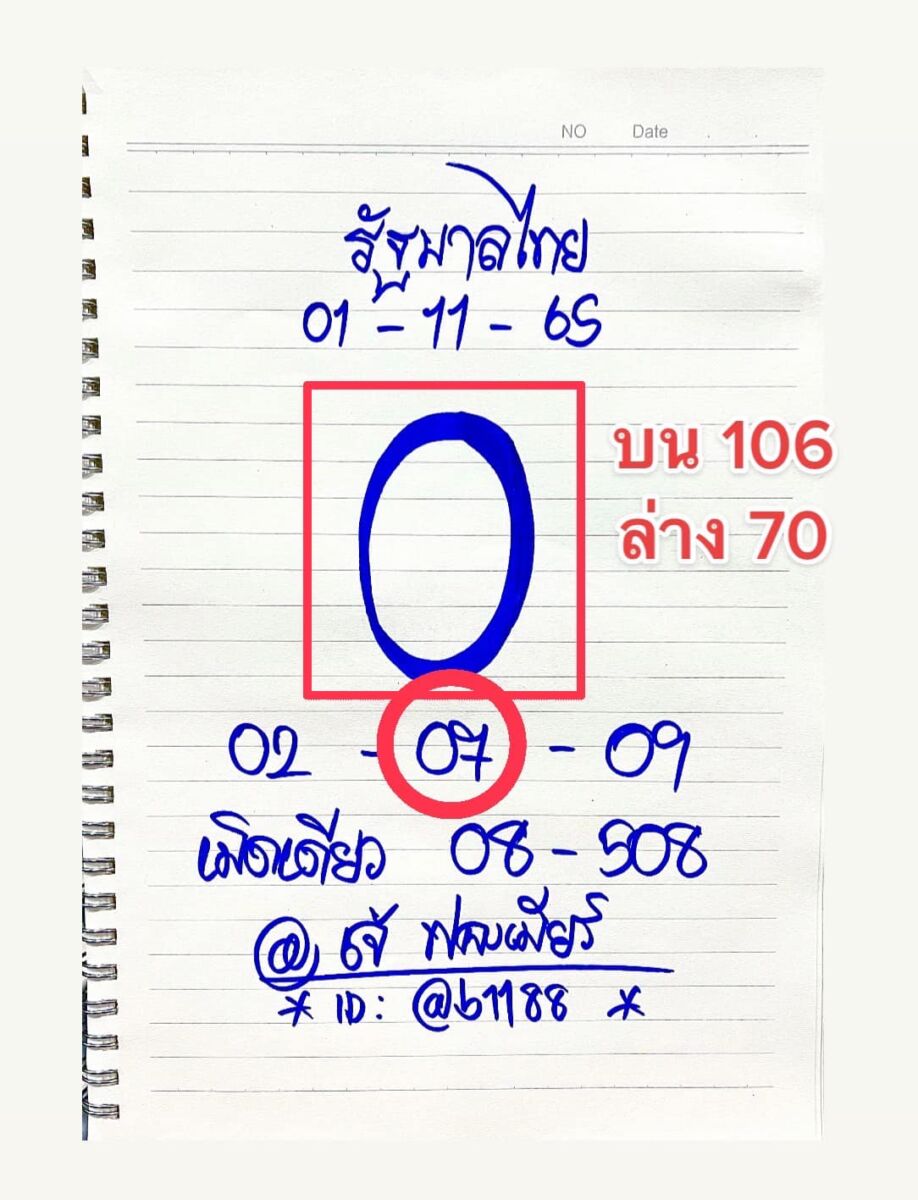 NO Date
รัฐบาลไทย
01 - 11 - 65
0
บน 106
ล่าง 70
02 - 07 - 09
เม็ดเดียว 08 - 508
@ เจ๊
* ID: @b1188 *